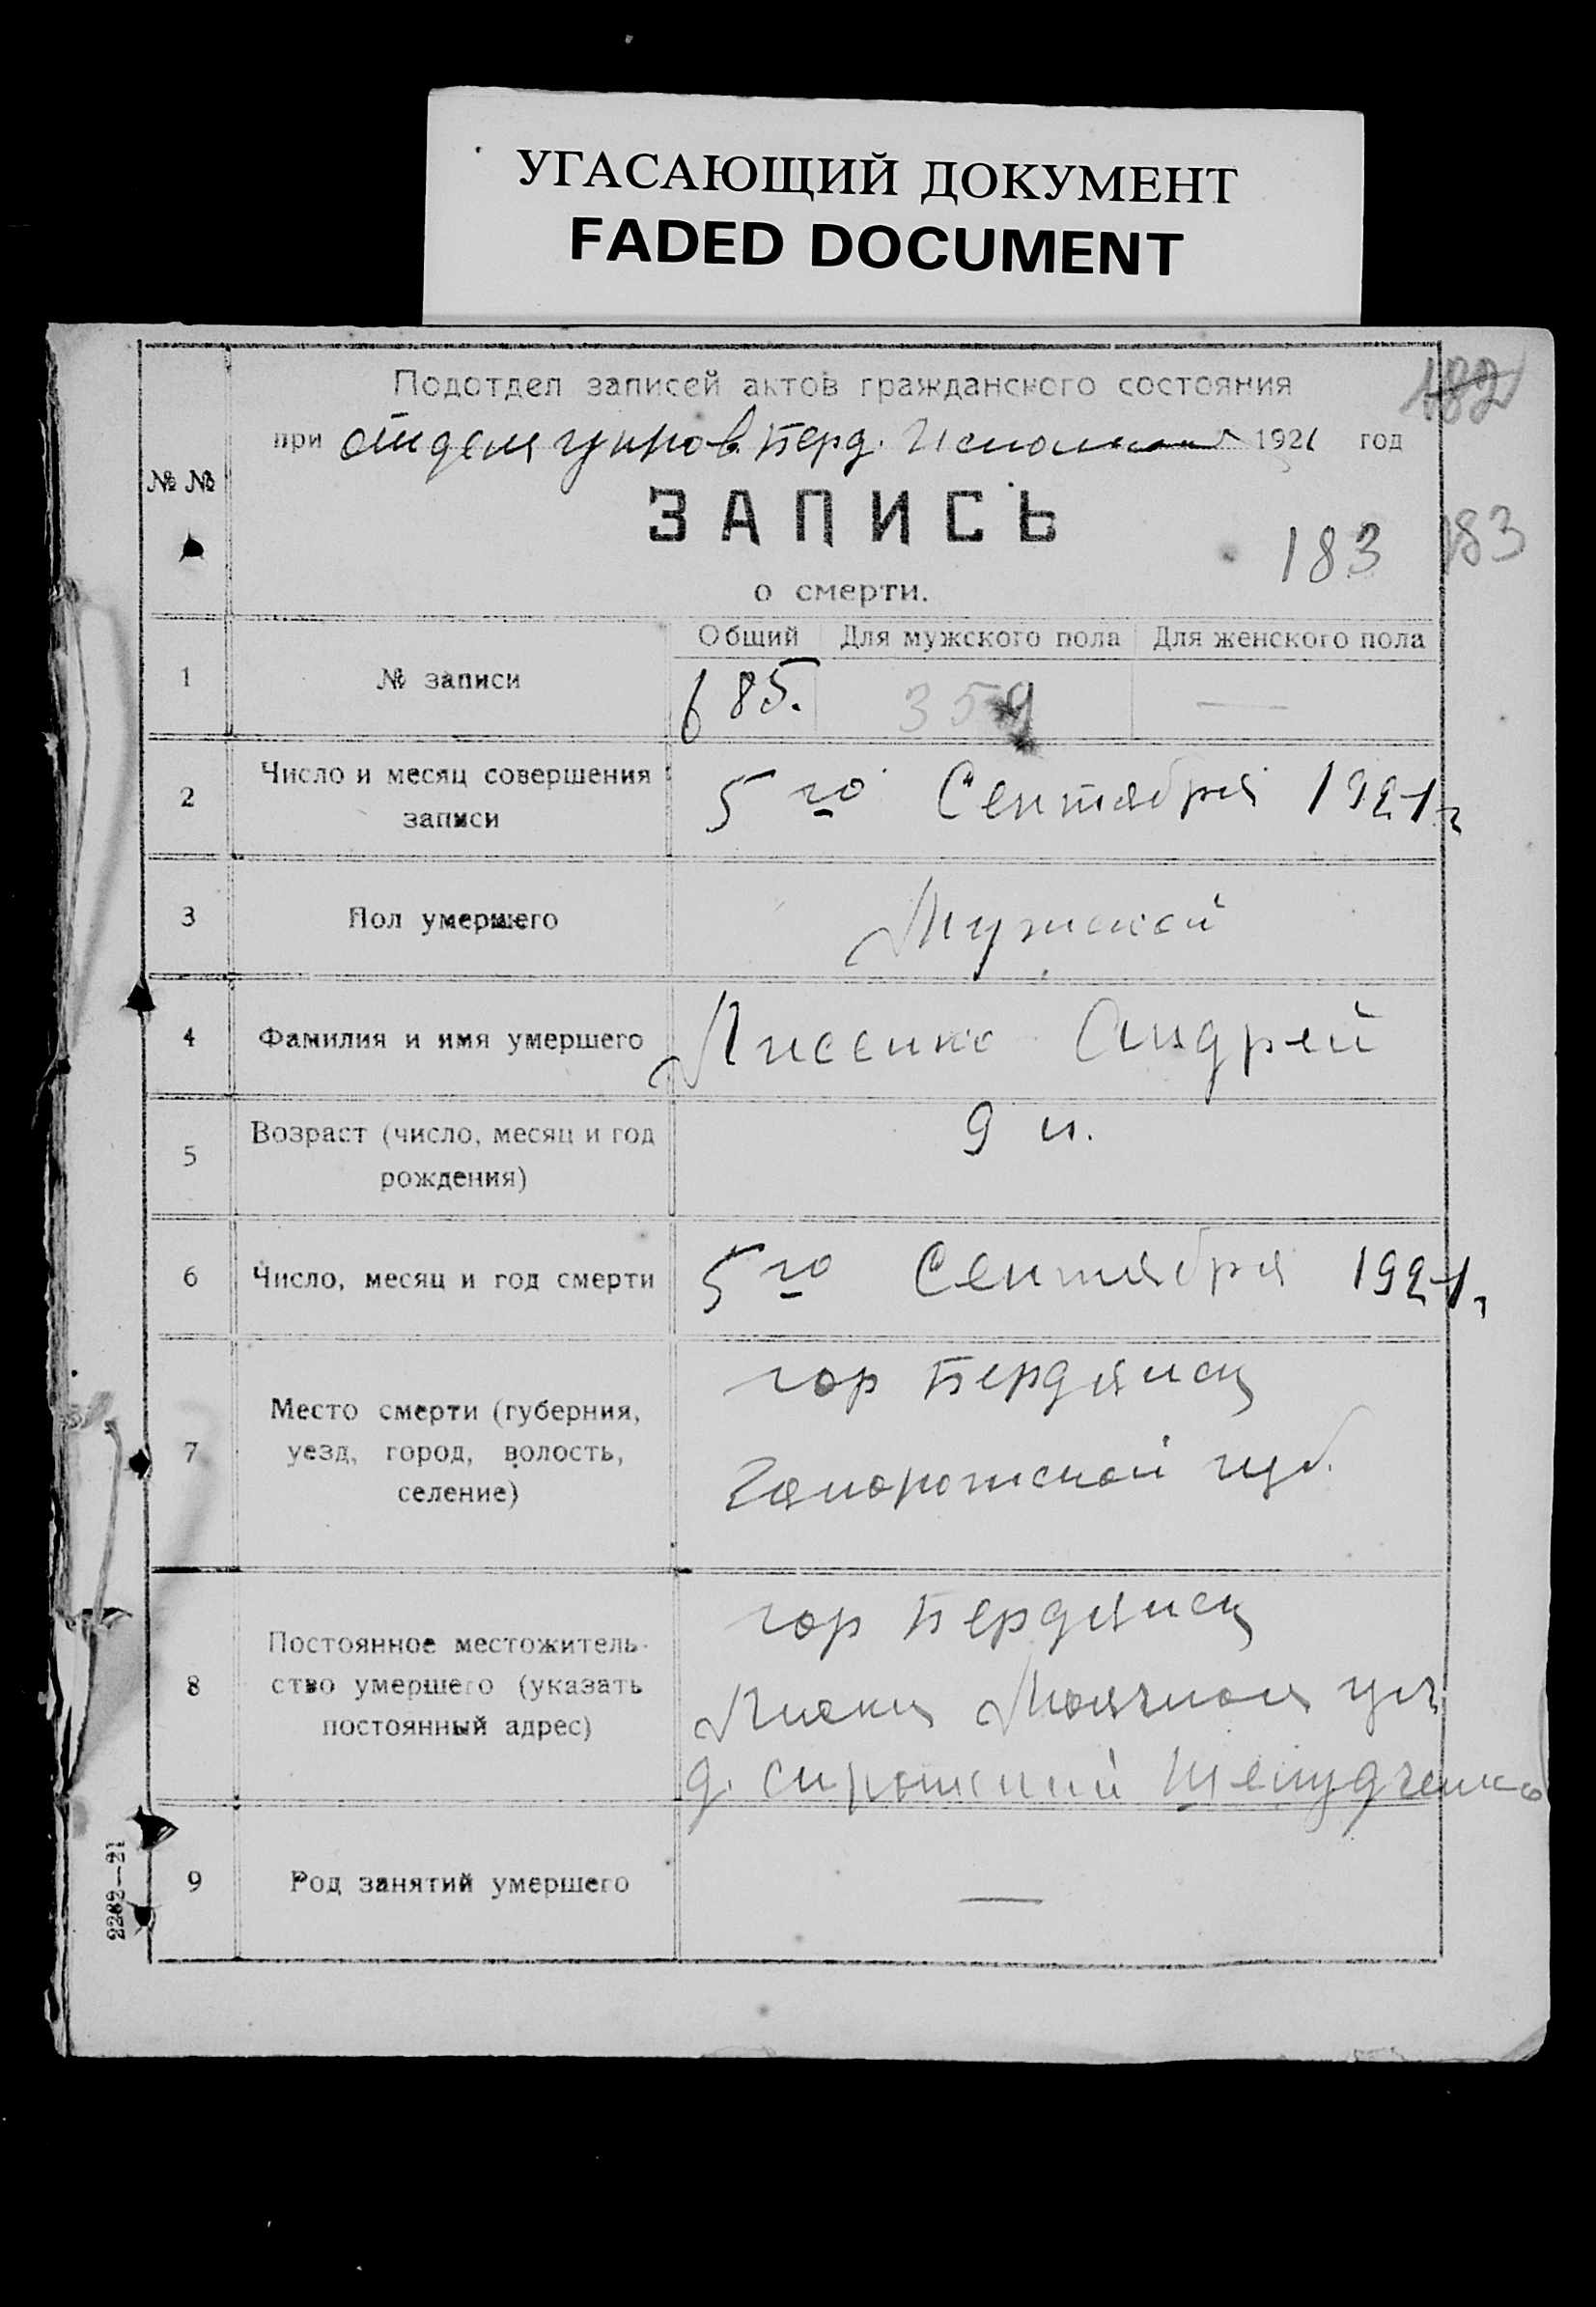 УГАСАЮЩИЙ ДОКУМЕНТ
FADED DOCUMENT
Подотдел записей актов гражданского состояния
182
при отделе управ. Берд. 1921 год
№ №
ЗАПИСЬ
183 183
о смерти.
Общий Для мужского пола Для женского пола
1 № записи 685. 359 —
2 Число и месяц совершения
записи
5го Сентября 1921 г
3 Пол умершего Мужской
4 Фамилия и имя умершего Лисенко Андрей
5 Возраст (число, месяц и год
рождения)
9 м.
6 Число, месяц и год смерти 5го Сентября 1921 г
7 Место смерти (губерния,
уезд, город, волость,
селение)
гор Бердянск
Запорожской губ.
8 Постоянное местожитель-
ство умершего (указать
постоянный адрес)
гор Бердянск
Лиски Маячная ул
д.
9 Род занятий умершего —
2282—21